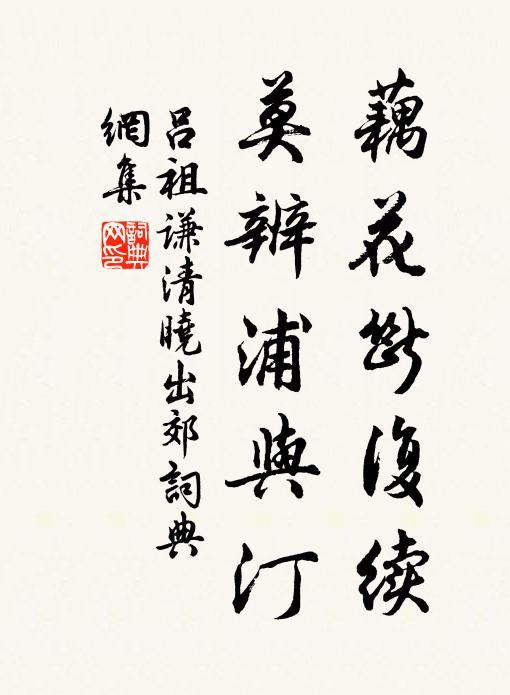 藕花斷復續
莫辨浦與汀
呂祖谦清曉出郊詞典
網集
詞典
网印